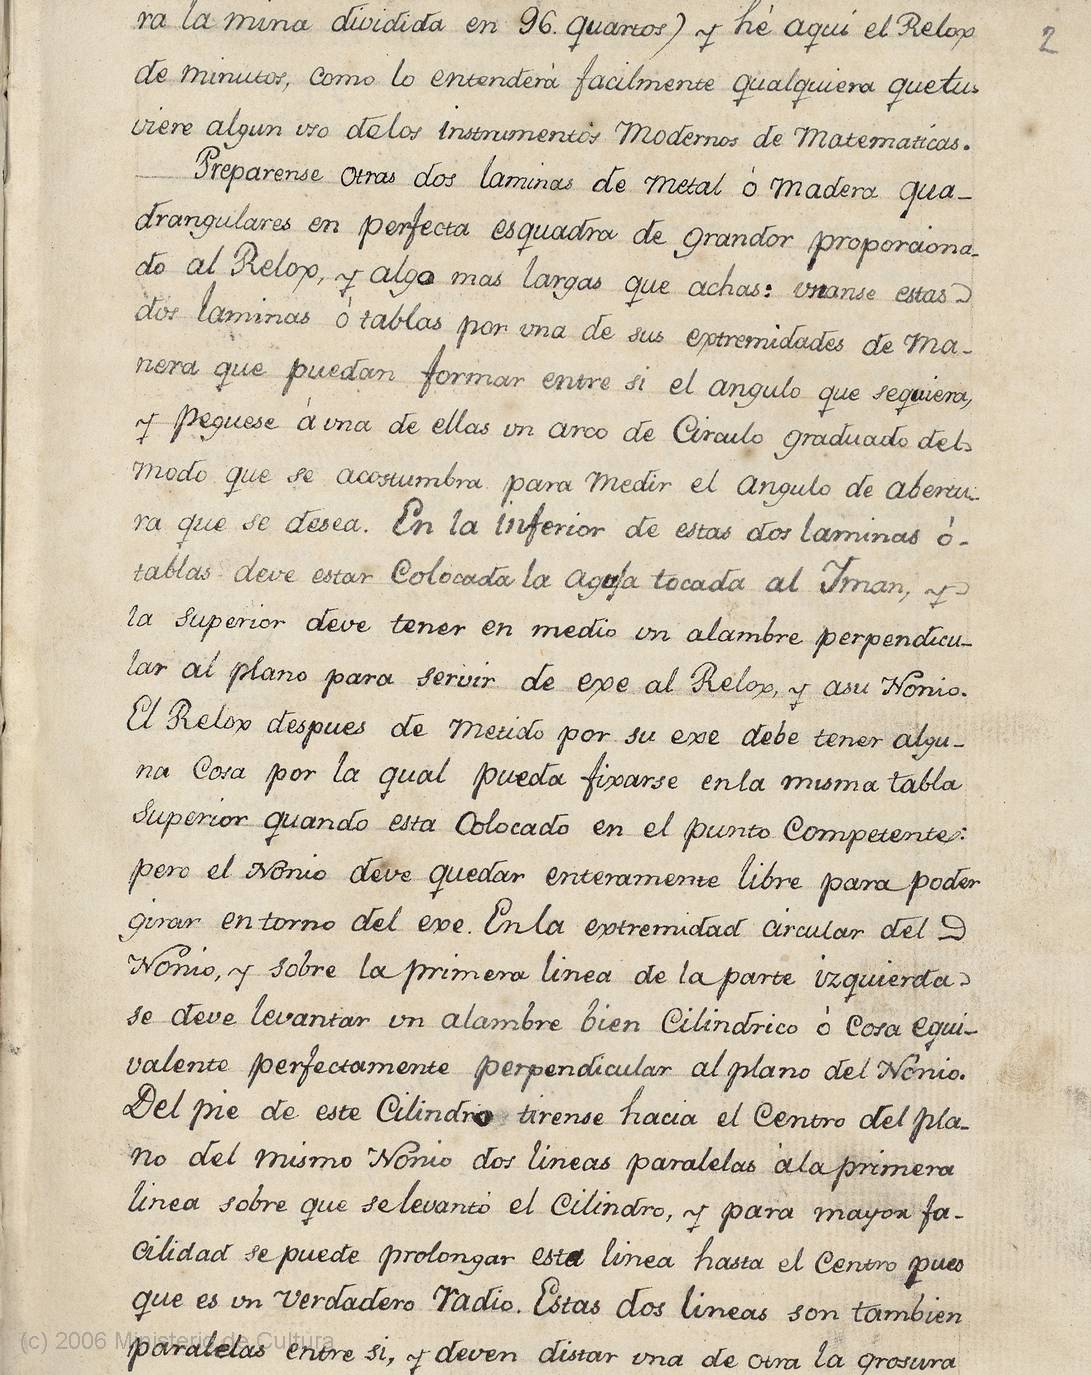 ra la mina dividida en 96. quartos) y hé aqui el Relox
2
de minutos, como lo entenderá facilmente qualquiera que tu-
viere algun uso de los instrumentos Modernos de Matematicas.
Preparense otras dos laminas de Metal ó Madera qua-
drangulares en perfecta esquadra de grandor proporciona-
do al Relox, y algo mas largas que achas: vnanse estas
dos laminas ó tablas por vna de sus extremidades de Ma-
nera que puedan formar entre si el angulo que se quiera,
y peguese á vna de ellas vn arco de Circulo graduado del
modo que se acostumbra para Medir el angulo de abertu-
ra que se desea. En la inferior de estas dos laminas ó-
tablas deve estar Colocada la aguja tocada al Iman, y
la superior deve tener en medio vn alambre perpendicu-
lar al plano para servir de exe al Relox, y asu Nonio.
El Relox despues de Metido por su exe debe tener algu-
na Cosa por la qual pueda fixarse en la misma tabla
Superior quando esta Colocado en el punto Competente:
pero el Nonio deve quedar enteramente libre para poder
girar en torno del exe. En la extremidad circular del
Nonio, y sobre la primera linea de la parte izquierda
se deve levantar vn alambre bien Cilindrico ó Cosa equi-
valente perfectamente perpendicular al plano del Nonio.
Del pie de este Cilindro tirense hacia el Centro del pla-
no del mismo Nonio dos lineas paralelas á la primera
linea sobre que se levantó el Cilindro, y para mayor fa-
cilidad se puede prolongar esta linea hasta el Centro pues
que es vn Verdadero Radio. Estas dos lineas son tambien
paralelas entre si, y deven distar vna de otra la grosura
(c) 2006 Ministerio de Cultura